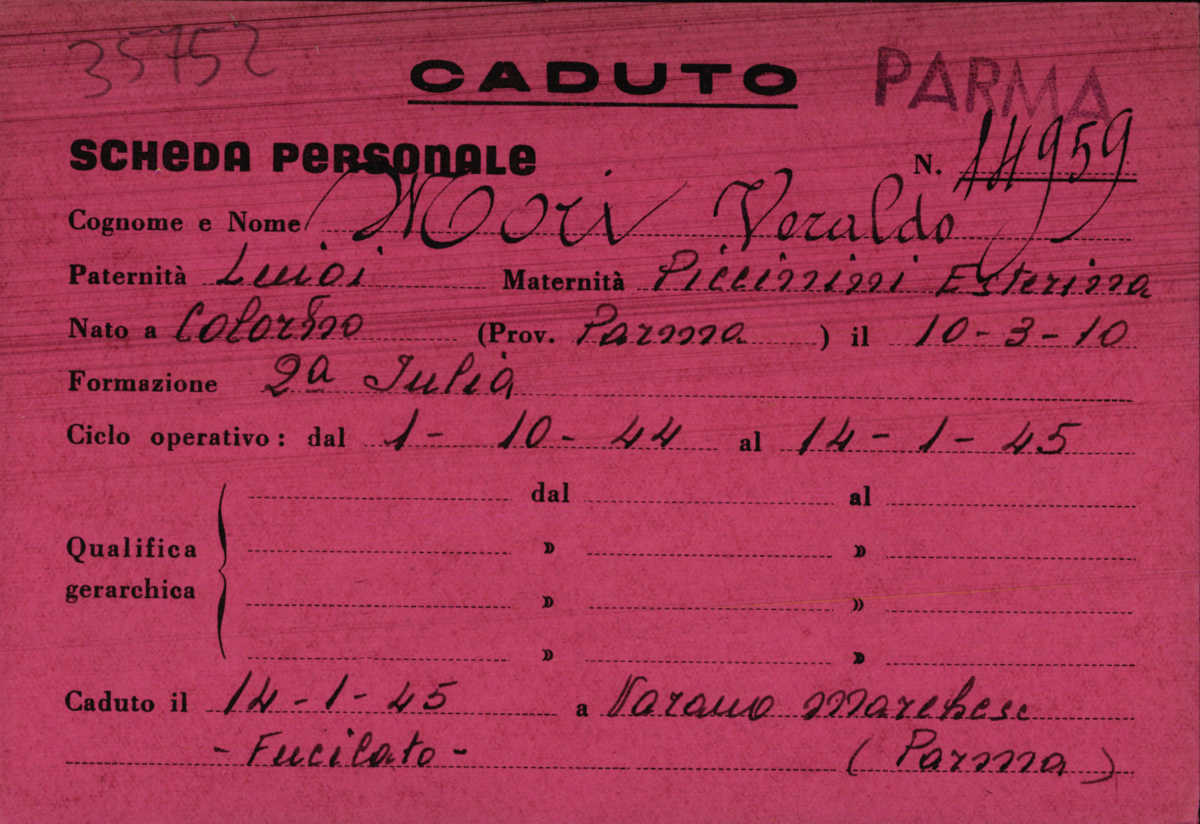 35752
CADUTO PARMA
SCHEDA PERSONALE N. 14959
Cognome e Nome Mori Veraldo
Paternità Luigi Maternità Piccinini Esterina
Nato a Colorno (Prov. Parma ) il 10-3-10
Formazione 2a Julia
Ciclo operativo: dal 1- 10- 44 al 14- 1- 45
dal al
Qualifica » »
gerarchica » »
» »
Caduto il 14-1-45 a Varano Marchese
- Fucilato - (Parma)